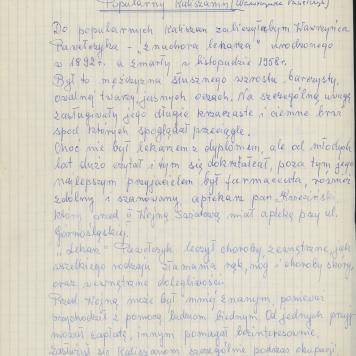 Popularny Kaliszanin (Wawrzyniec
Do popularnych Kaliszan zaliczyłabym Wawrzyńca
Pawełczyka - "znachora lekarza" urodzonego
w 1892 r. a zmarły w listopadzie 1958 r.
Był to mężczyzna słusznego wzrostu, barczysty,
owalnej twarzy, jasnych oczach. Na szczególną uwagę
zasługiwały jego długie krzaczaste i ciemne brwi
spod których spoglądał przeciągle.
Choć nie był lekarzem z dyplomem, ale od młodych
lat dużo czytał i tym się dokształcał, poza tym jego
najlepszym przyjacielem był farmaceuta, również
zdolny i szanowany aptekarz pan
który przed II Wojną Światową miał aptekę przy ul.
Górnośląskiej.
"Lekarz" Pawełczyk leczył choroby zewnętrzne, jak
wszelkiego rodzaju złamania rąk, nóg i choroby skóry,
oraz wewnętrzne dolegliwości.
Przed Wojną może był mniej znanym, ponieważ
przychodził z pomocą ludziom biednym. Od jednych przyj-
mował zapłatę, innym pomagał bezinteresownie.
Zasłużył się Kaliszanom szczególnie podczas okupacji